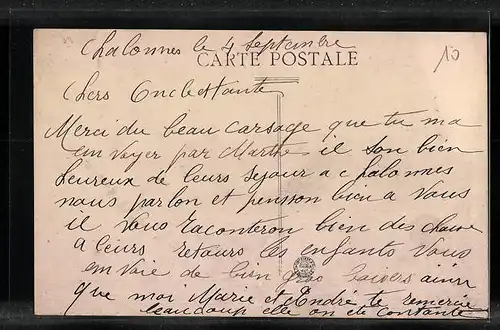 Chalonnes le 4 Septembre
CARTE POSTALE
10
Chers Oncle et tante
Merci du beau Carsage que tu ma
en voyer par Marthe il son bien
heureux de leurs sejour a chalonnes
nous parlon et pensson bien a Vous
il Vous raconteron bien des chause
a leurs retours les enfants Vous
en voie de bien gros baisers ainsi
que moi Marie et André te remercie
beaucoup elle on été contante